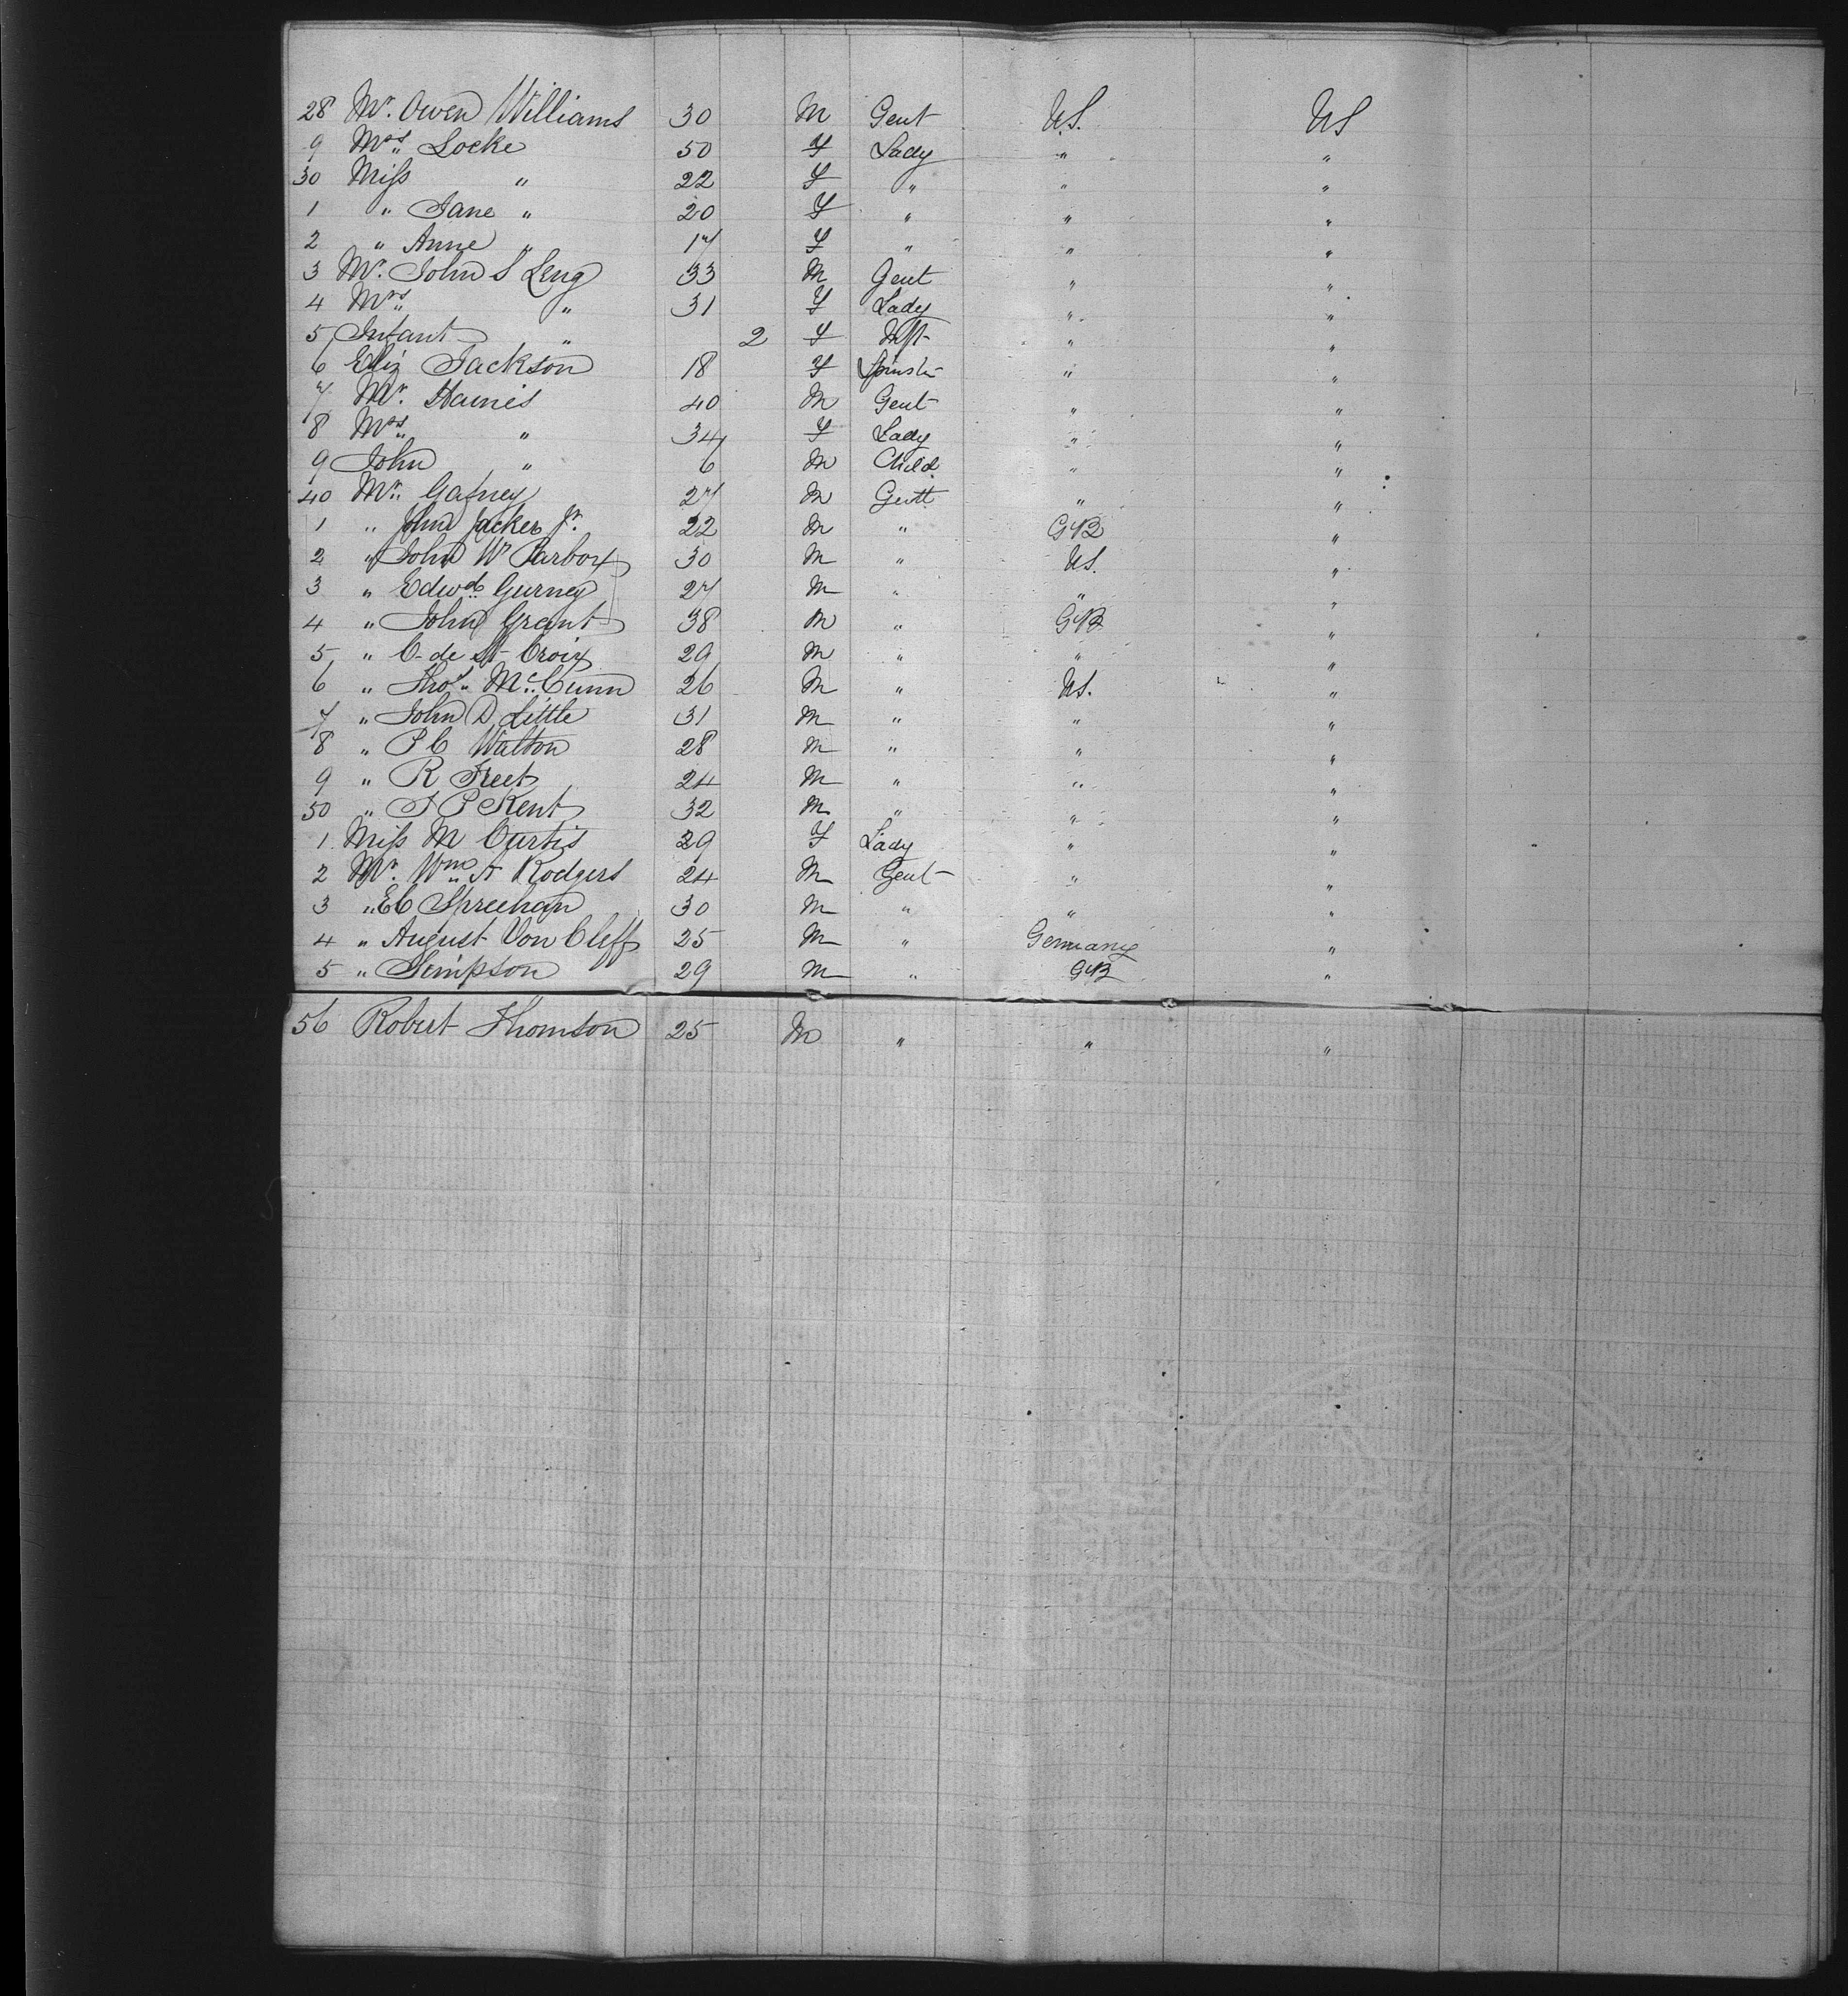 28 Mr. Owen Williams 30 M Gent U.S. US
9 Mrs Locke 50 F Lady " "
30 Miss " 22 F " " "
1 " Jane " 20 F " " "
2 " Anne " 17 F " " "
3 Mr. John S Leng 33 M Gent " "
4 Mrs " 31 F Lady " "
5 Infant " 2 F Inft " "
6 Eliz Jackson 18 F Spinstr " "
7 Mr. Haines 40 M Gent " "
8 Mrs " 34 F Lady " "
9 John " 6 M Child " "
40 Mr. Gafney 27 M Gent " "
1 " John Jr. 22 M " GB "
2 " John W 30 M " US. "
3 " Edwd Gurney 27 M " " "
4 " John Grant 38 M " GB "
5 " C de St Croix 29 M " " "
6 " Thos. McCunn 26 M " US. "
7 " John D Little 31 M " " "
8 " P C Walton 28 M " " "
9 " R 24 M " " "
50 " P Kent 32 M " " "
1 Miss M Curtis 29 F Lady " "
2 Mr. Wm A Rodgers 24 M Gent " "
3 " E C 30 M " " "
4 " August Von Cleff 25 M " Germany "
5 " Simpson 29 M " GB "
56 Robert Thomson 25 M " " "